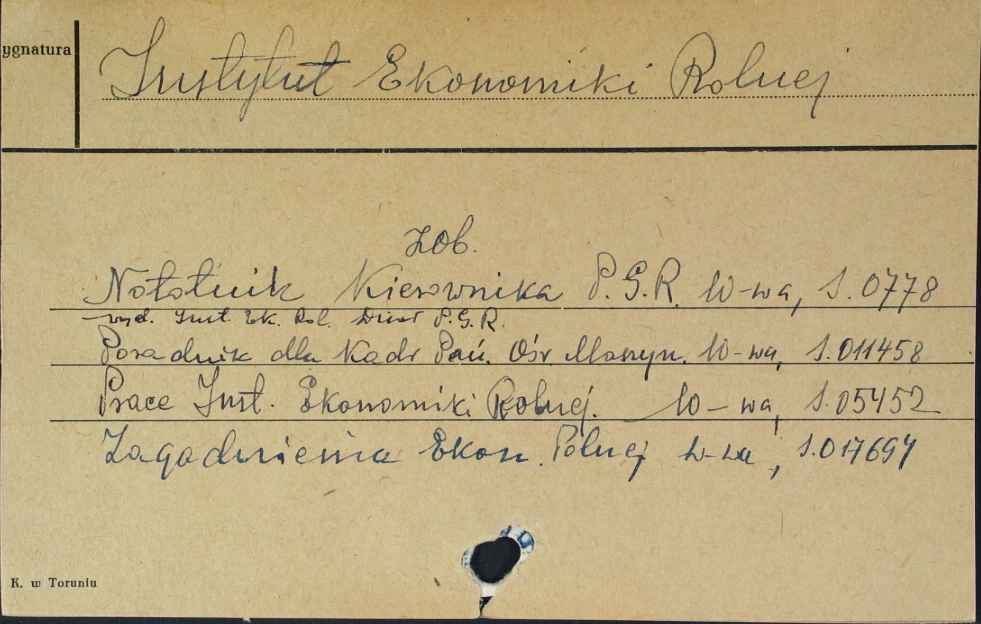 ygnatura
Instytut Ekonomiki Rolnej
Zob.
Notatnik Kierownika P.G.R. W-wa, S.0778
wyd. Inst. Ek. Rol. Dział P.G.R.
Poradnik dla Kadr Pań. Ośr. Maszyn. W-wa, S.011458
Prace Inst. Ekonomiki Rolnej. W-wa, S.05452
Zagadnienia Ekon. Rolnej W-wa, S.017694
K. w Toruniu